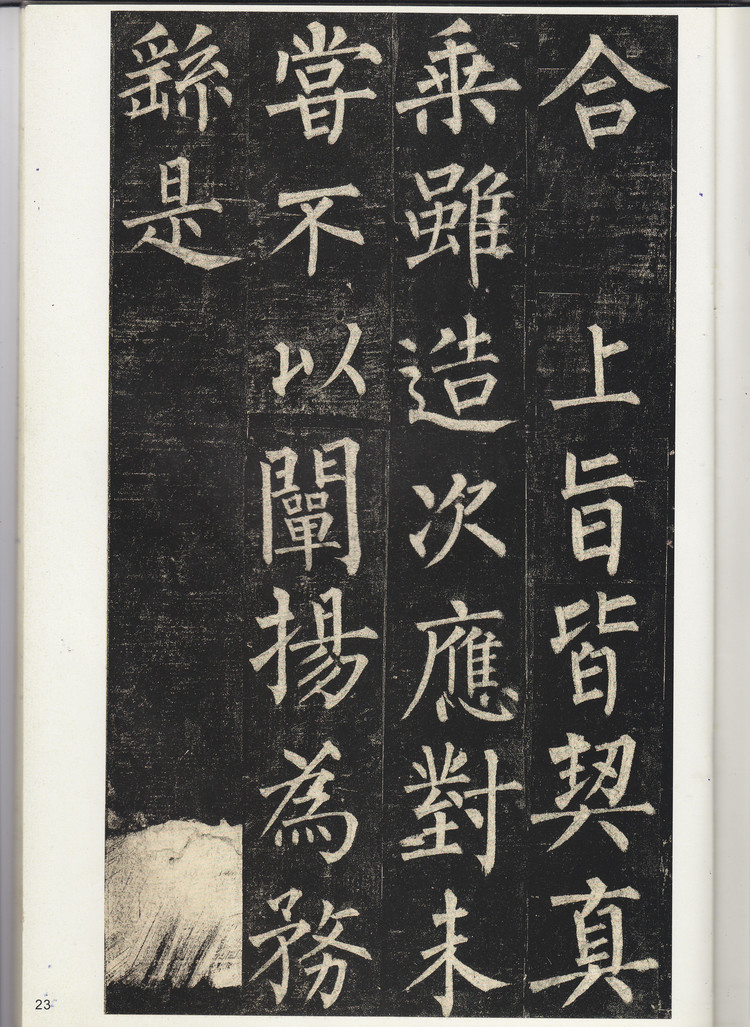 合 上旨皆契真
乘雖造次應對未
嘗不以闡揚為務
繇是
23